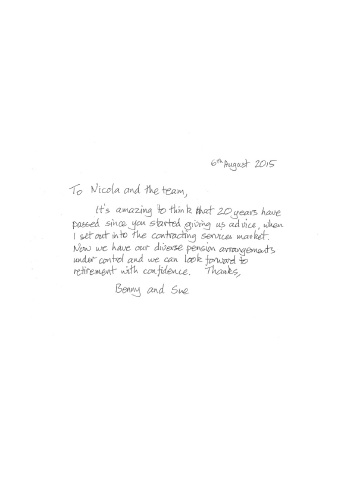 6th August 2015
To Nicola and the team,
It's amazing to think that 20 years have
passed since you started giving us advice, when
I set out into the contracting services market.
Now we have our diverse pension arrangements
under control and we can look forward to
retirement with confidence. Thanks,
Benny and Sue